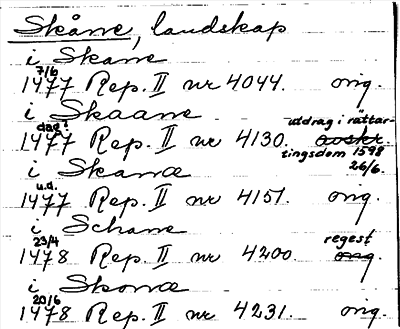 Skåne, landskap
i Skane
7/6
1477 Rep. II nr 4044. orig.
i Skaane
dag?
1477 Rep. II nr 4130. avskr. utdrag i rättar-
tingsdom 1598
26/6.
i Skanæ
u.d.
1477 Rep. II nr 4151. orig.
i Schane
23/4
1478 Rep. II nr 4200 orig. regest
i Skonæ
20/6
1478 Rep. II nr 4231. orig.